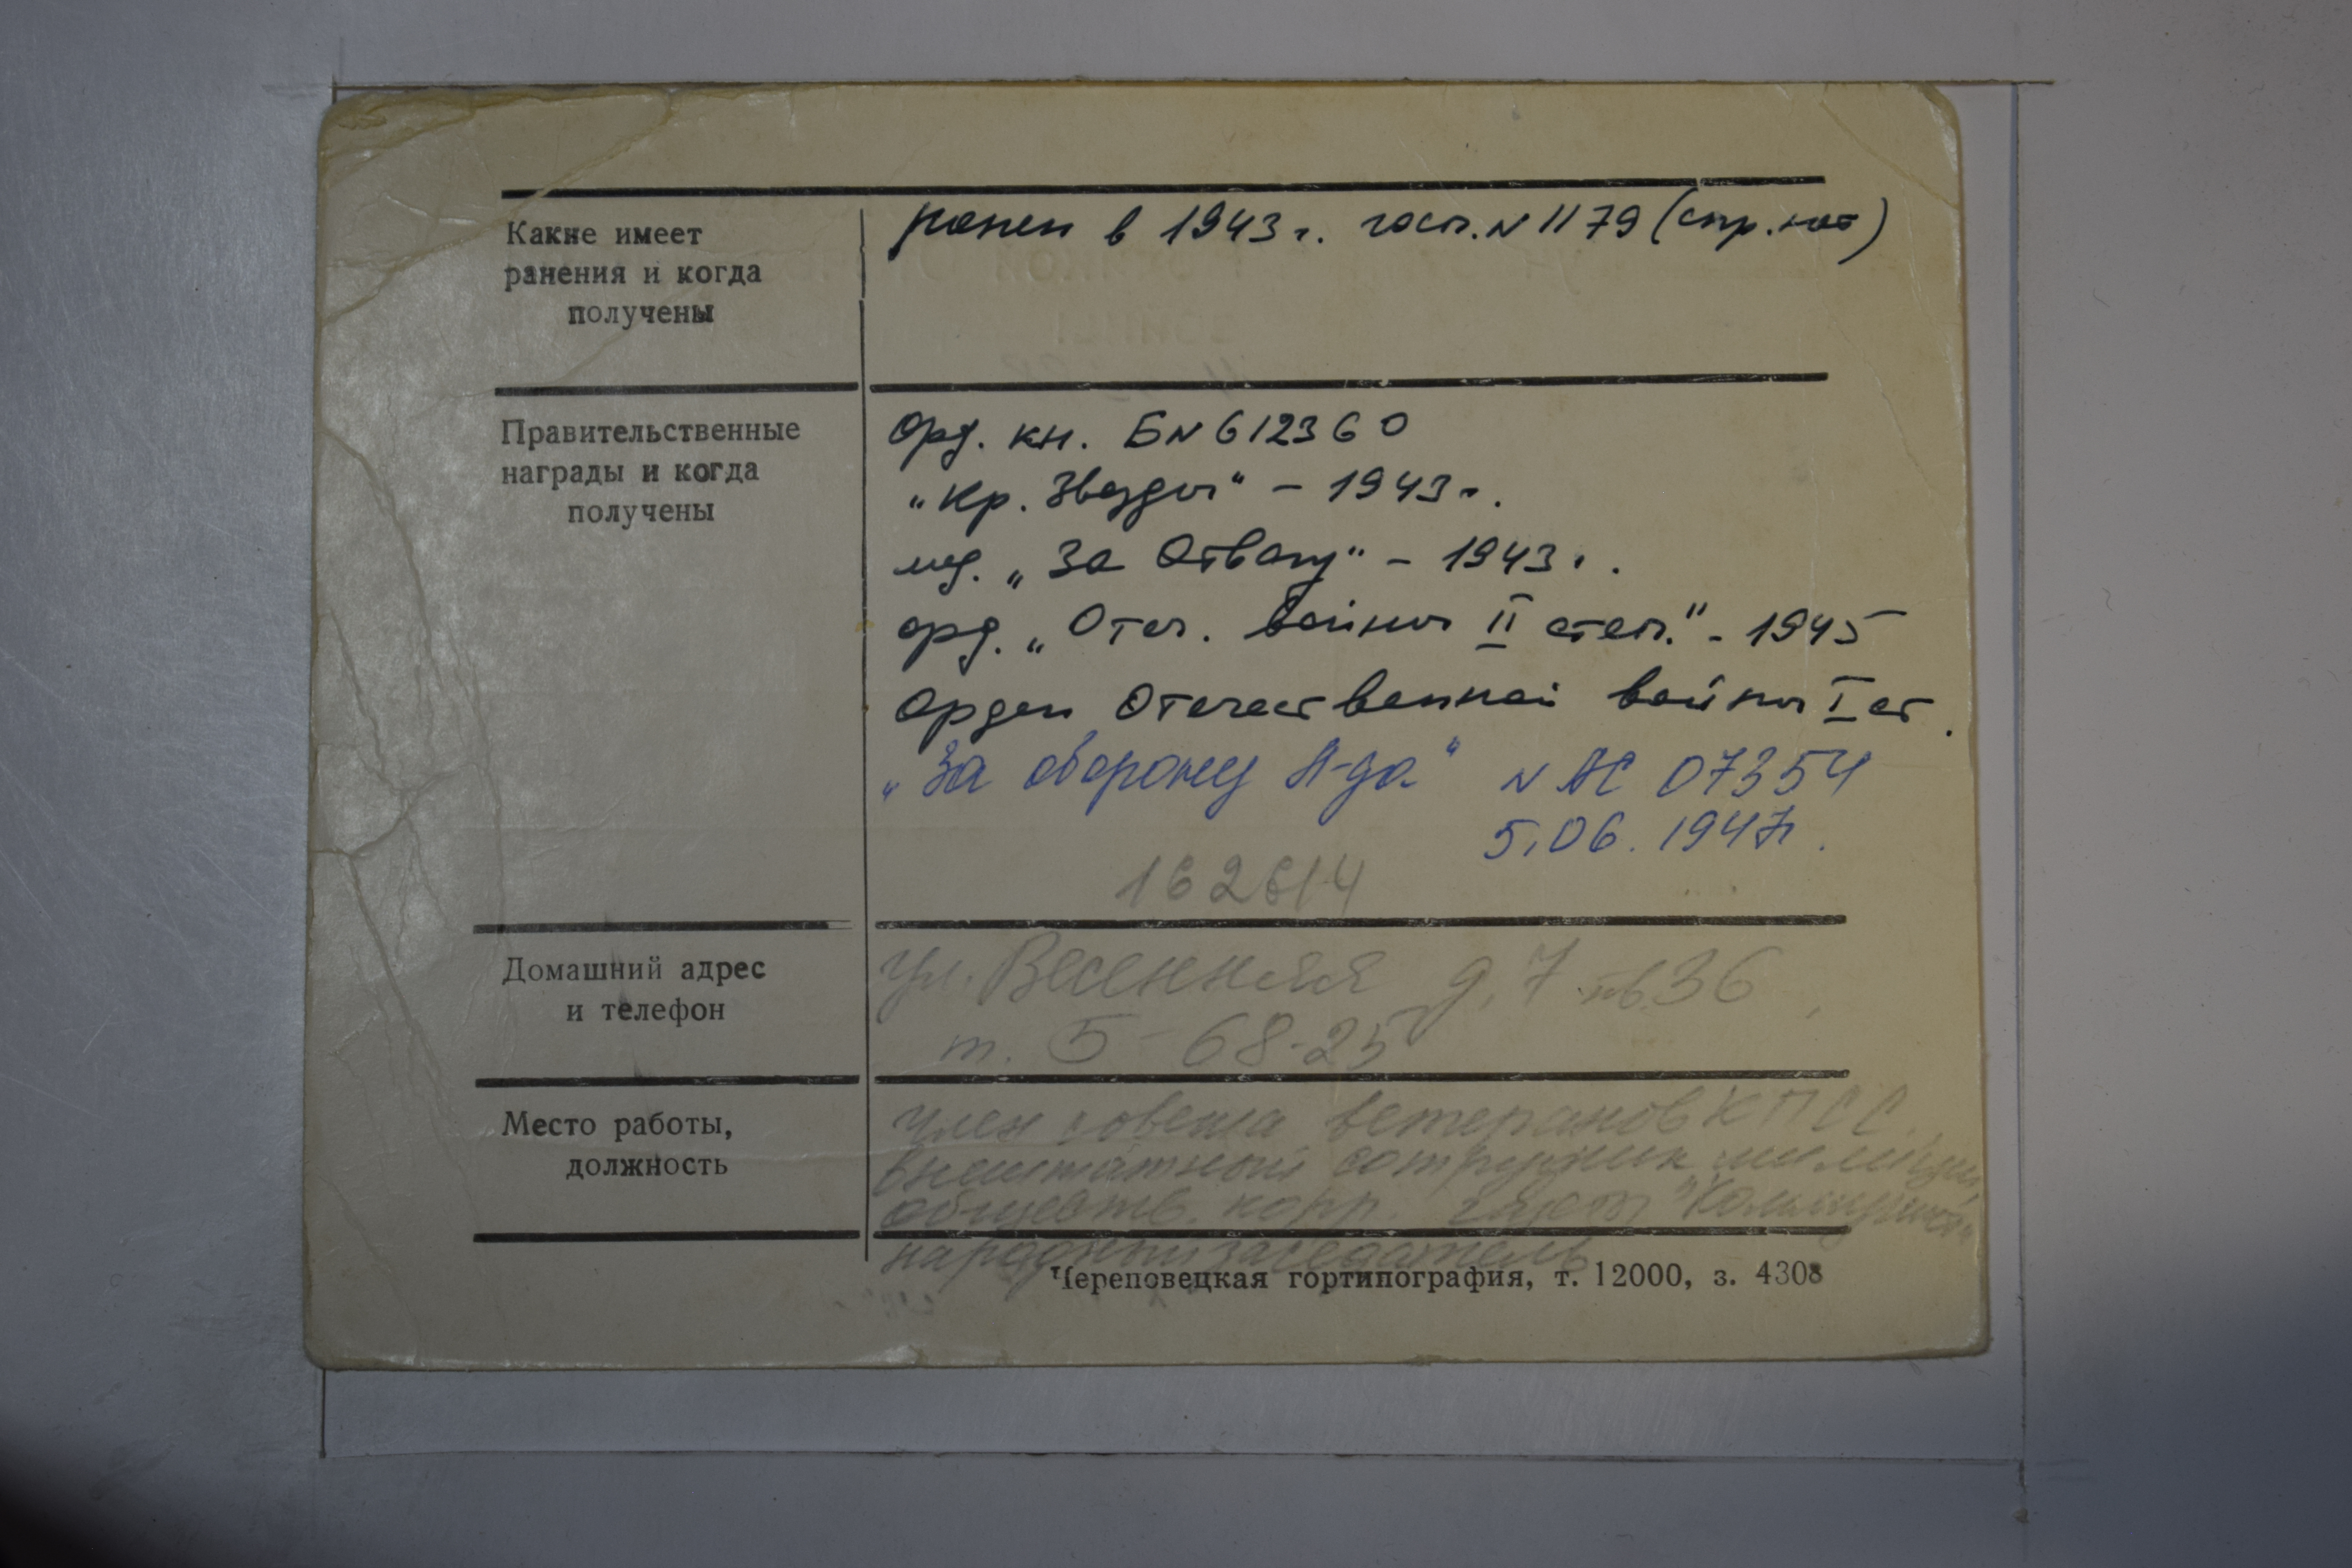 Какие имеет
ранения и когда
получены
ранен в 1943 г. госп. N 1179 (спр. нет)
Правительственные
награды и когда
получены
Орд. кн. Б N 612360
„Кр. Звезды“ - 1943 г.
мед. „За Отвагу“ - 1943 г.
орд. „Отеч. войны II степ.“ - 1945
Орден Отечественной войны I ст.
„За оборону Л-да“ N АС 07354
5.06.1947г.
162614
Домашний адрес
и телефон
ул. Весенняя д. 7 кв 36
т. 5-68-25
Место работы,
должность
Член совета ветеранов КПСС,
внештатный сотрудник милиции,
обществ. корр. газеты "Коммунист"
народный заседатель
Череповецкая гортипография, т. 12000, з. 4308